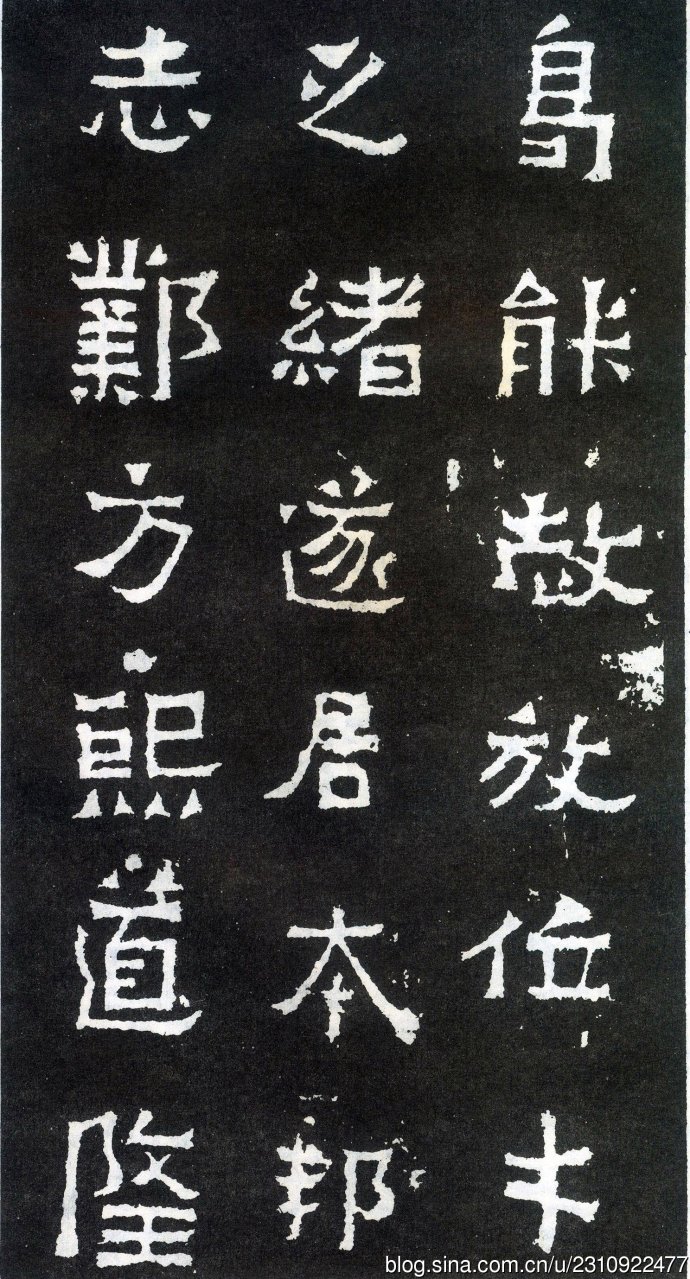 曷能赦放位才
之緒遂居本邦
志鄴方熙道隆
blog.sina.com.cn/u/2310922477